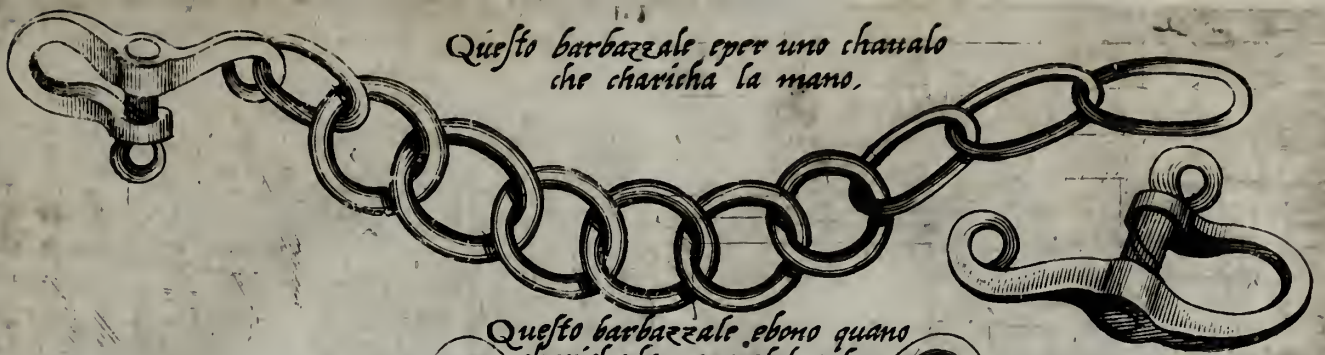 Queſto barbazzale eper uno chaualo
che charicha la mano,
Queſto barbazzale ebono quano